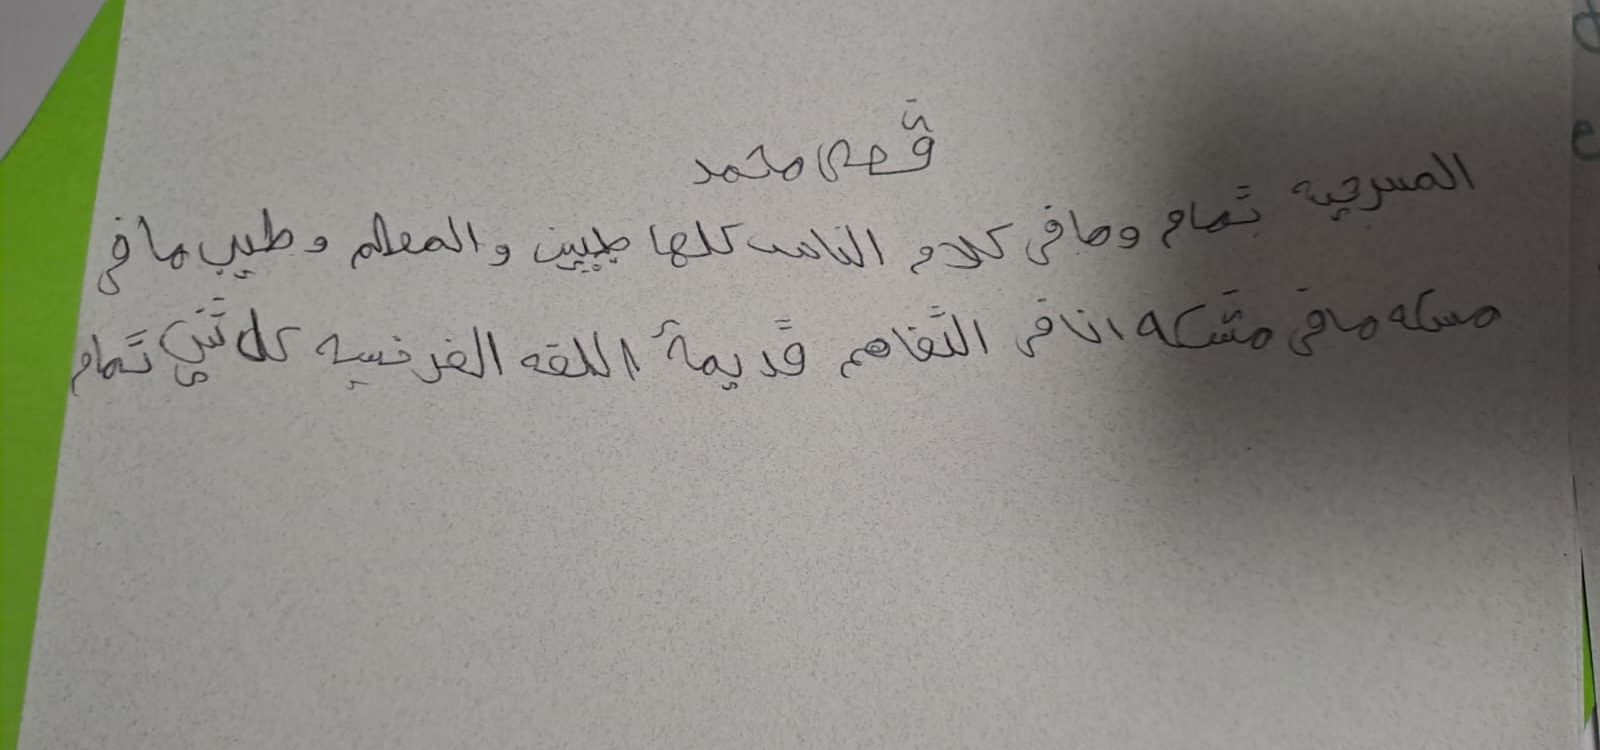 قصى محمد
المسرحيه تمام وما في كلام الناس كلها طيبين والمعلم وطيب ما في
مسكله ما في مشكله انا في التفاهم قديمة اللقه الفرنسيه كل شي تمام